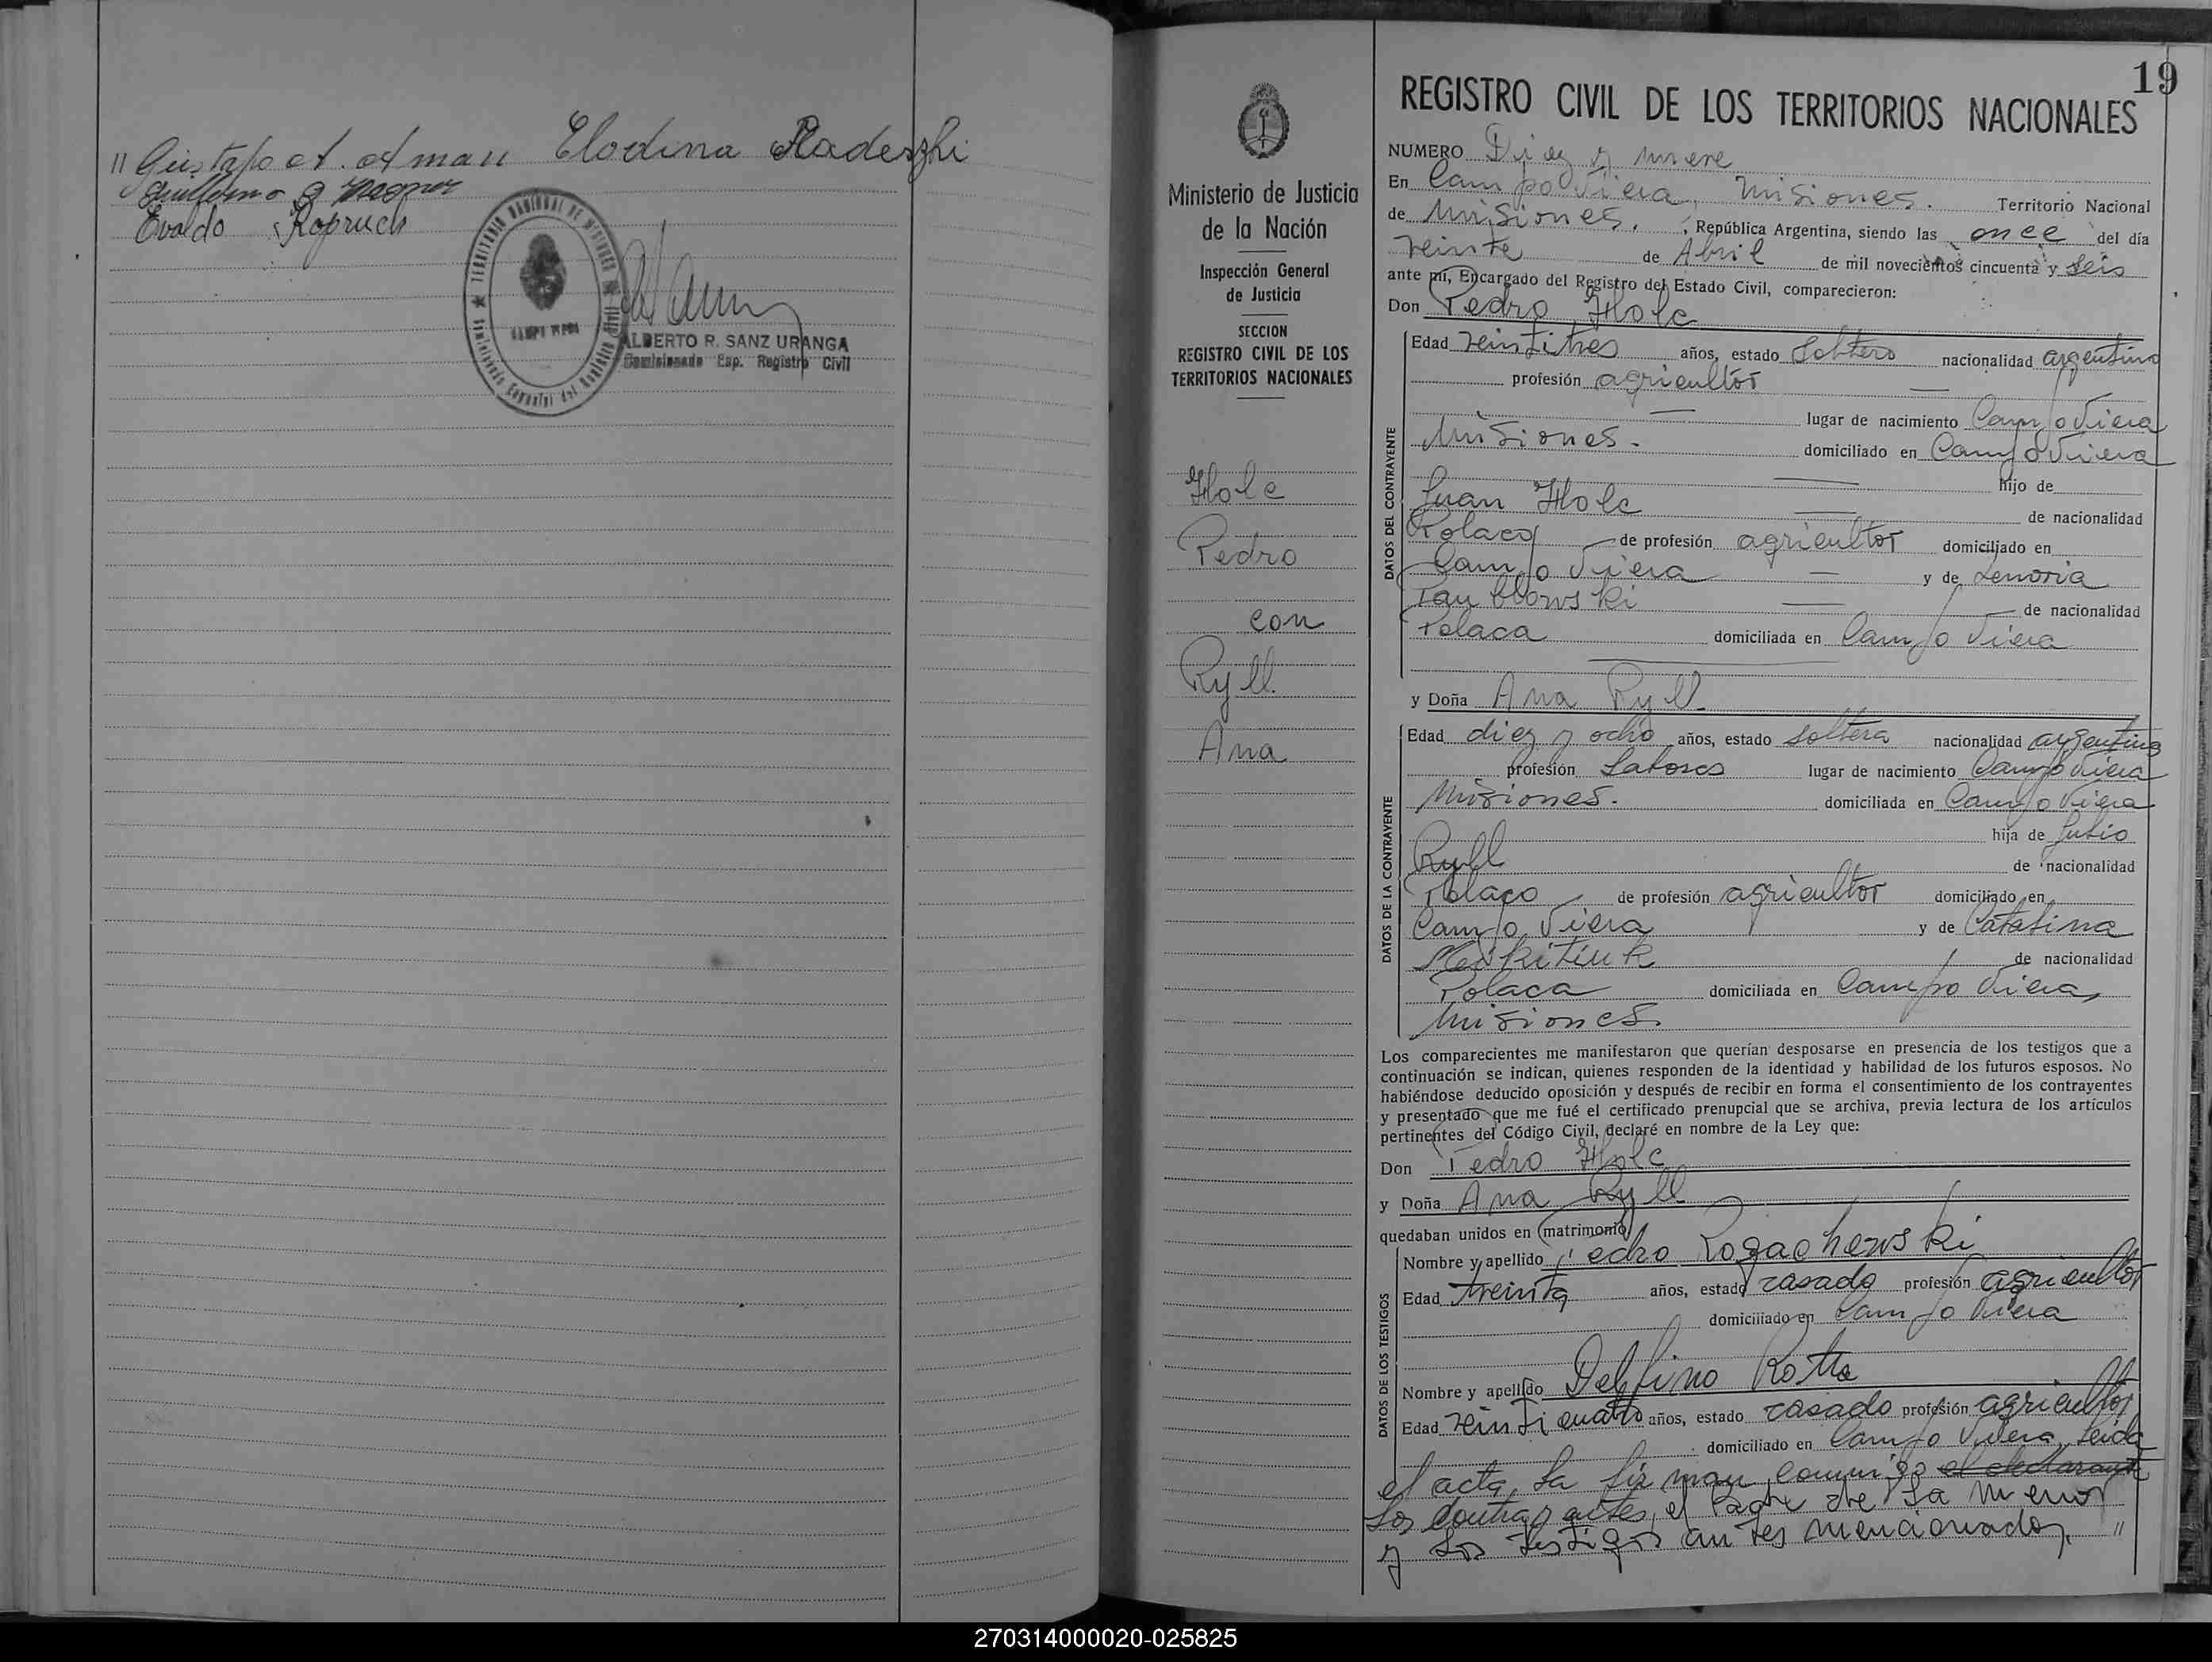 " Gustavo A. Aman Elodina Radeszki
Guillermo
Evaldo Kopruch
TERRITORIO NACIONAL DE MISIONES
ALBERTO R. SANZ URANGA
Comisionado Esp. Registro Civil
Ministerio de Justicia
de la Nación
Inspección General
de Justicia
SECCION
REGISTRO CIVIL DE LOS
TERRITORIOS NACIONALES
Holc
Pedro
con
Ryll
Ana
19
REGISTRO CIVIL DE LOS TERRITORIOS NACIONALES
NUMERO Diez y nueve
En Campo Viera, Misiones. Territorio Nacional
de Misiones. , República Argentina, siendo las once del día
veinte de Abril de mil novecientos cincuenta y seis
ante mi, Encargado del Registro del Estado Civil, comparecieron:
Don Pedro Holc
DATOS DEL CONTRAYENTE
Edad veintitres años, estado soltero nacionalidad argentino
profesión agricultor —
— lugar de nacimiento Campo Viera
Misiones. domiciliado en Campo Viera
— hijo de
Juan Holc — de nacionalidad
Polaco de profesión agricultor domiciliado en
Campo Viera — y de Lenoria
— de nacionalidad
Polaca domiciliada en Campo Viera
y Doña Ana Ryll
DATOS DE LA CONTRAYENTE
Edad diez y ocho años, estado soltera nacionalidad argentina
profesión Labores lugar de nacimiento Campo Viera
Misiones. domiciliada en Campo Viera
hija de Julio
Ryll de nacionalidad
Polaco de profesión agricultor domiciliado en
Campo Viera y de Catalina
de nacionalidad
Polaca domiciliada en Campo Viera,
Misiones.
Los comparecientes me manifestaron que querían desposarse en presencia de los testigos que a
continuación se indican, quienes responden de la identidad y habilidad de los futuros esposos. No
habiéndose deducido oposición y después de recibir en forma el consentimiento de los contrayentes
y presentado que me fué el certificado prenupcial que se archiva, previa lectura de los artículos
pertinentes del Código Civil, declaré en nombre de la Ley que:
Don Pedro Holc
y Doña Ana Ryll
quedaban unidos en matrimonio
DATOS DE LOS TESTIGOS
Nombre y apellido Pedro Rogachewski
Edad treinta años, estado casado profesión agricultor
domiciliado en Campo Viera
Nombre y apellido Delfino Rotta
Edad veinticuatro años, estado casado profesión agricultor
domiciliado en Campo Viera, Leida
el acta, la firman conmigo el declarante
los contrayentes, el Padre de la menor
y los testigos antes mencionados. "
270314000020-025825